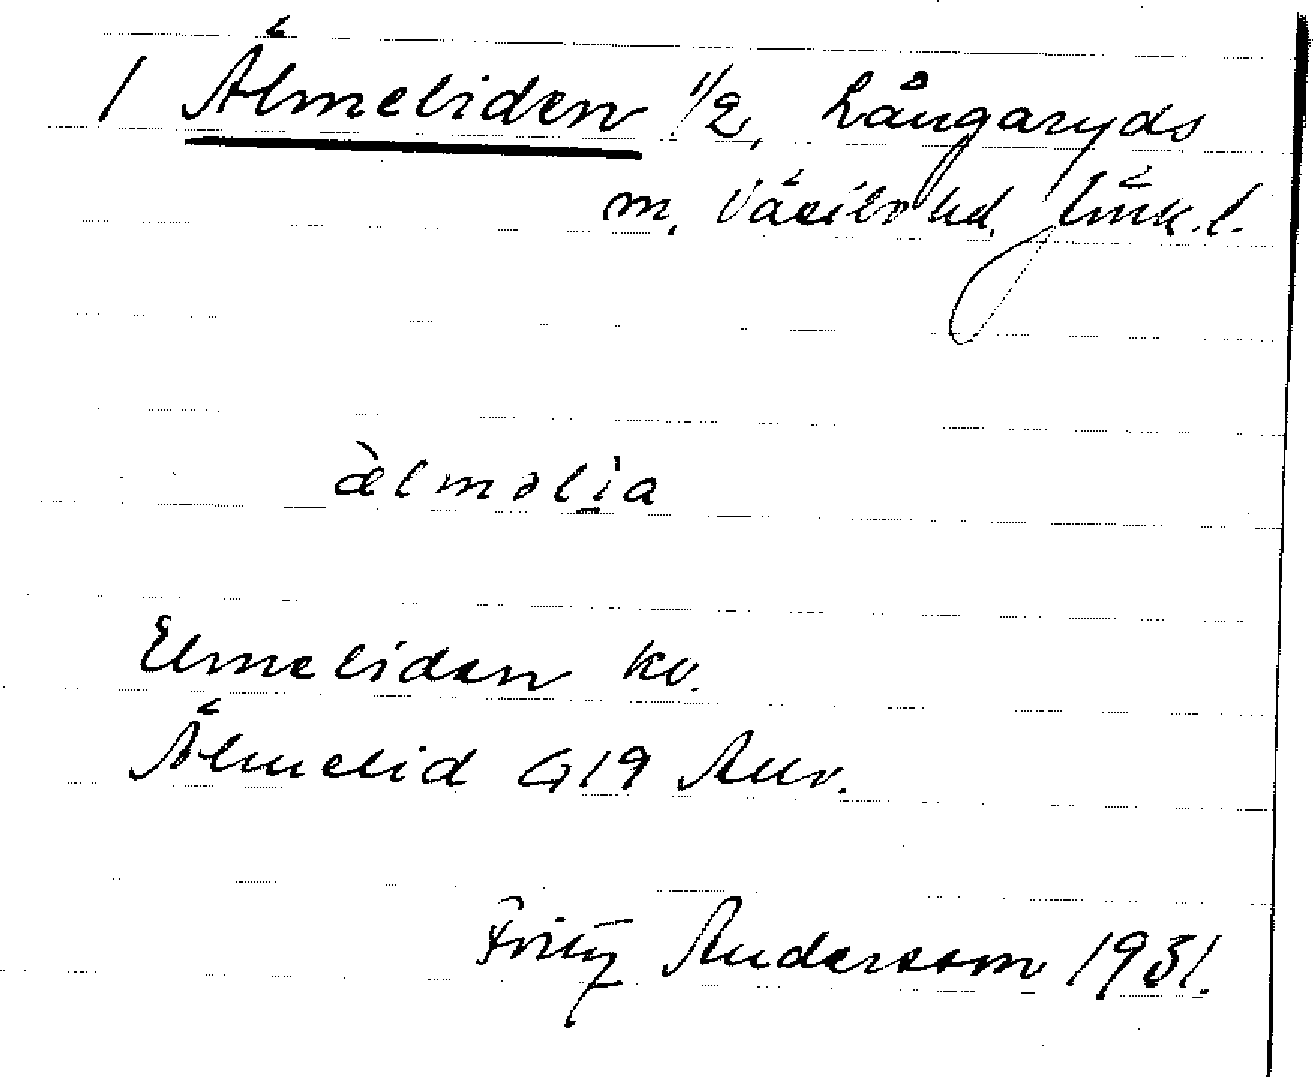 1 Älmeliden 1/2, Långaryds
sn, Västbo hd, Jönk.l.
àlməlia
Elmeliden kv.
Älmelid G19 Anv.
Fritz Andersson 1931.